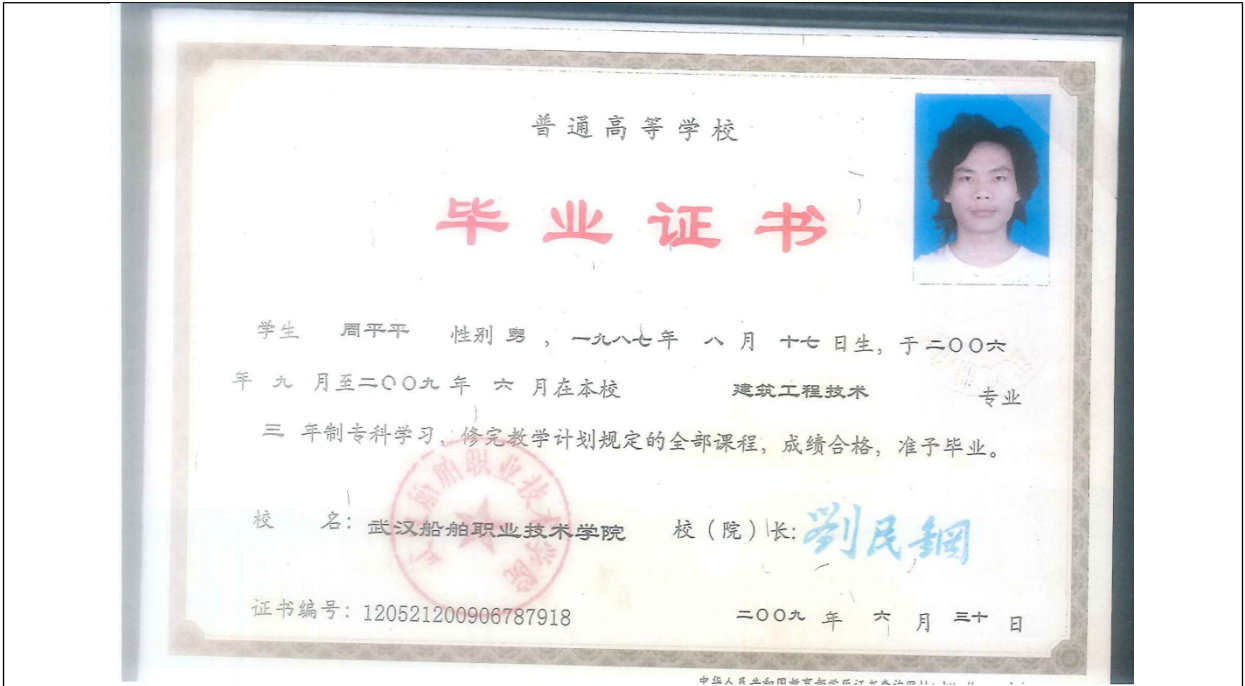 普通高等学校
毕业证书
学生 周平平 性别 男 , 一九八七年 八 月 十七 日生, 于 二〇〇六
年 九 月至二〇〇九 年 六 月在本校 建筑工程技术 专业
三 年制专科学习, 修完教学计划规定的全部课程, 成绩合格, 准予毕业。
校 名: 武汉船舶职业技术学院 校(院)长: 劉民鋼
武汉船舶职业技术学院
证书编号: 120521200906787918 二〇〇九 年 六 月 三十 日
中华人民共和国教育部学历证书查询网址: